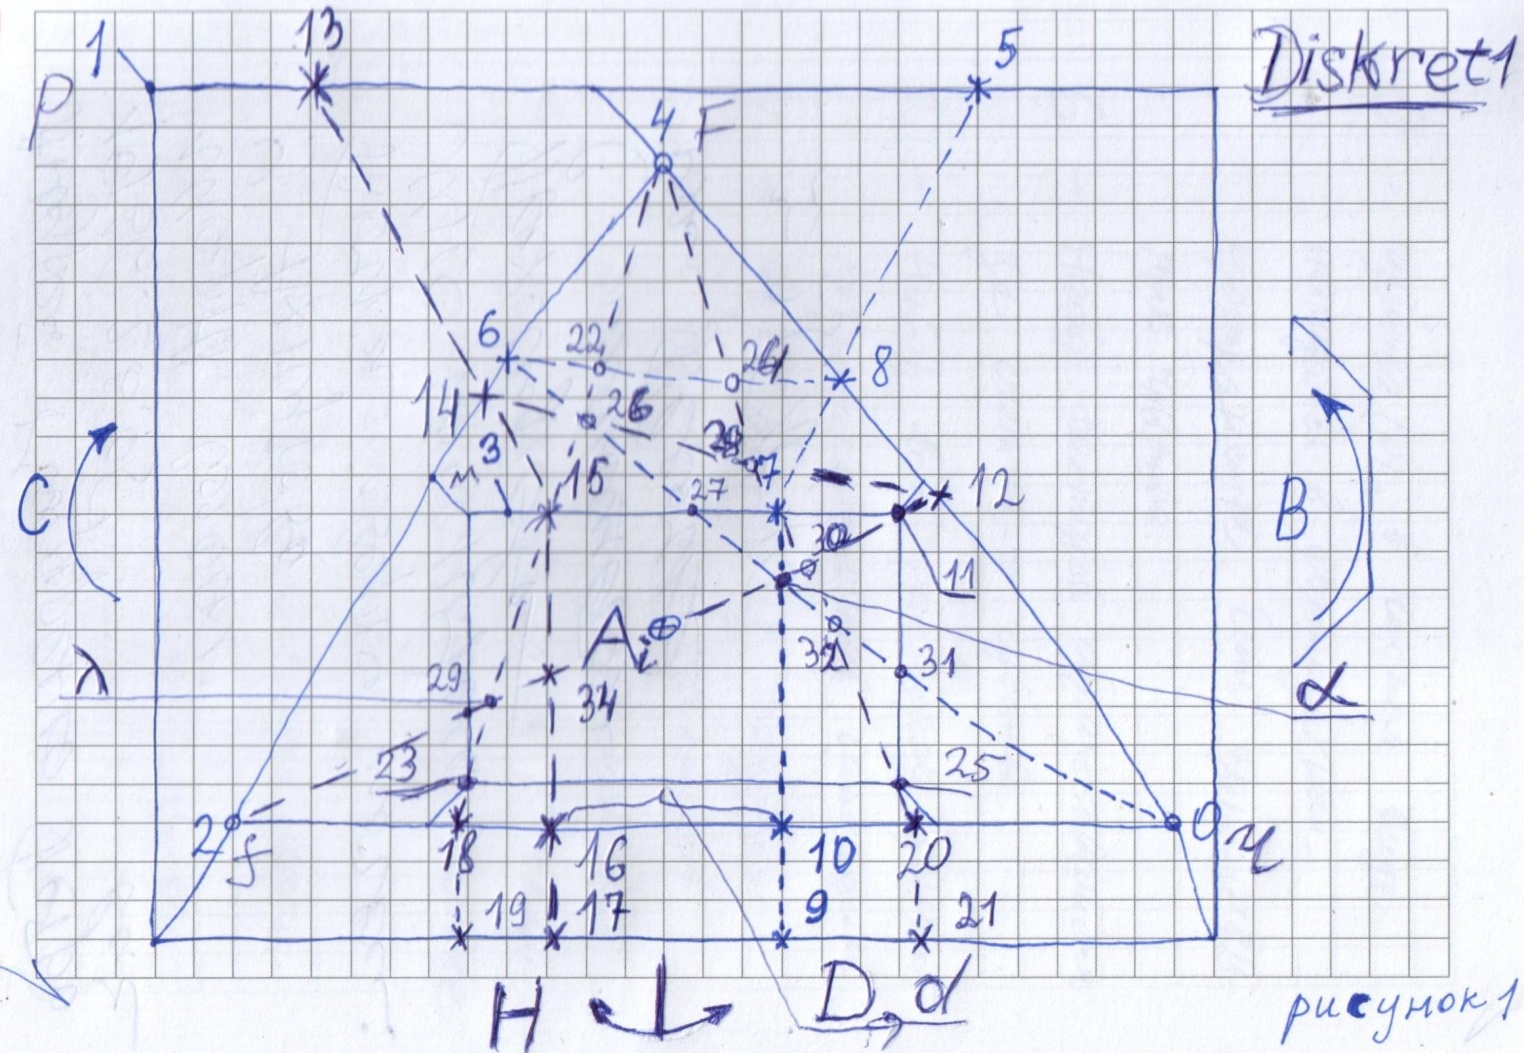 1
13
5
Diskret1
P
4 F
6
22
8
14
26
3
15
27
7
12
C
B
30
11
Ai
λ
29
34
31
α
23
25
2
f
18
16
10
20
0
19
17
9
21
H
D
d
рисунок 1